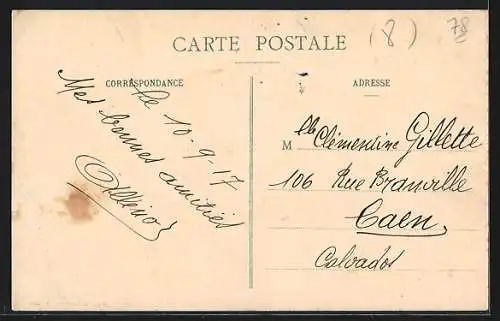 (8)
78
CARTE POSTALE
CORRESPONDANCE
ADRESSE
Le 10-9-17
Mes bonnes amitiés
M lle Clémentine Gillette
106 Rue Branville
Caen
Calvados